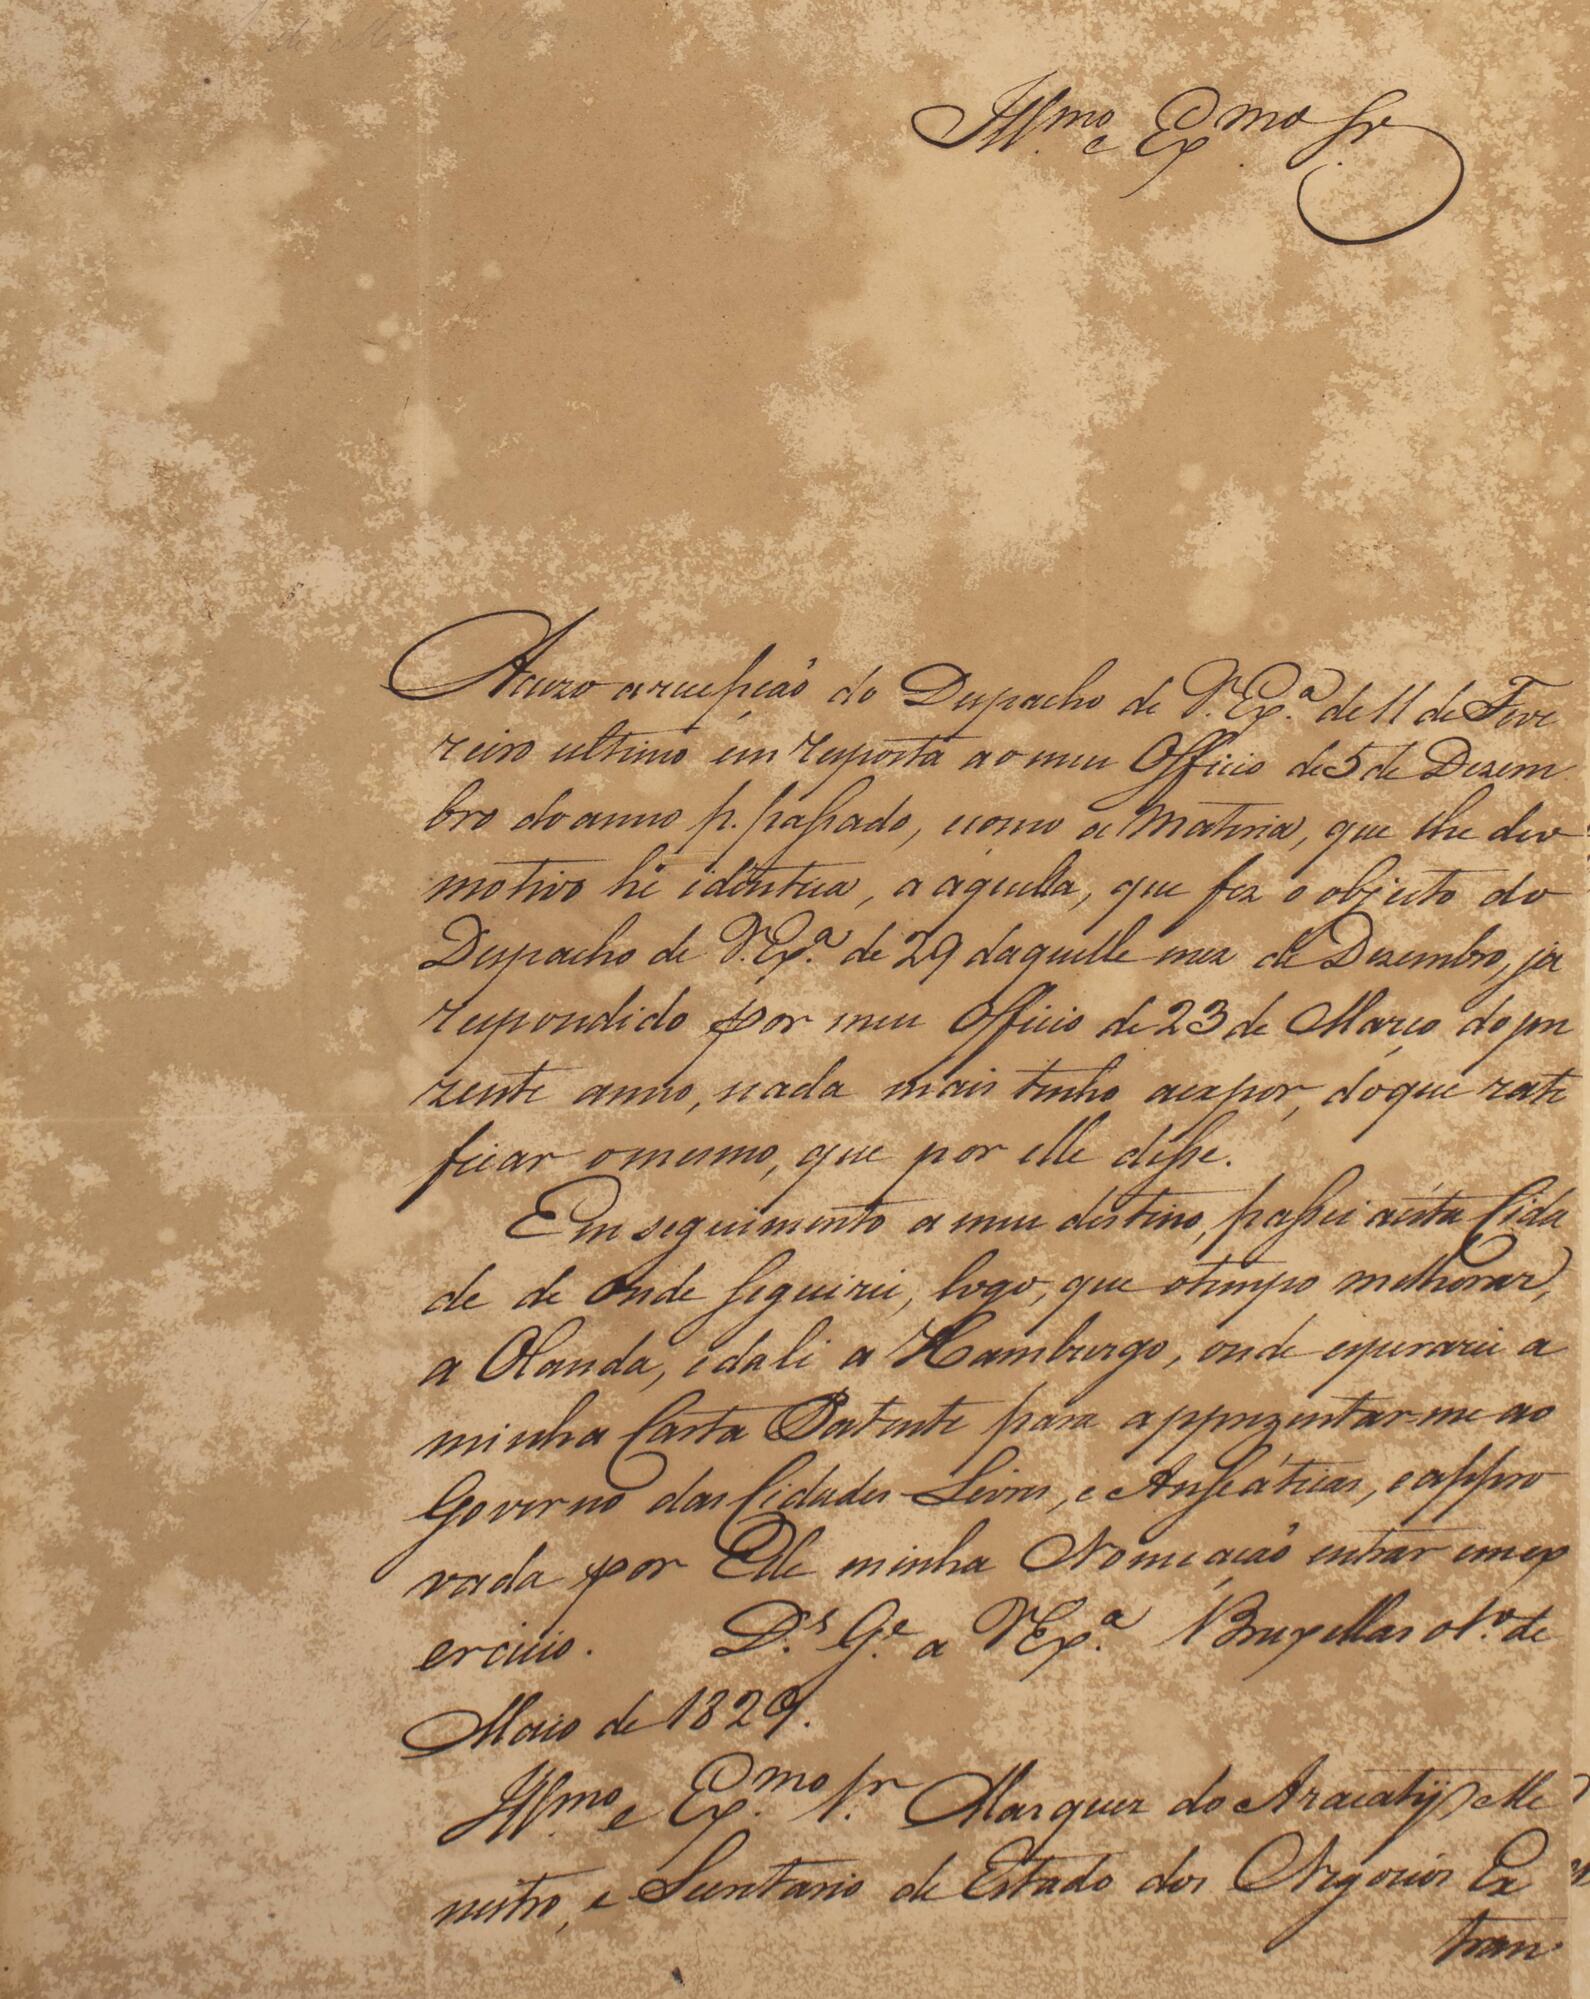 1 de Maio 182
Illmo. e Exmo. Sr.
Acuzo a recepção do Despacho de V. Exª. de 11 de Feve
reiro ultimo em resposta ao meu Officio de 5 de Dezem
bro do anno p. passado, e como a materia, que lhe deo
motivo hé identica, a aquella, que fez o objecto do
Despacho de V. Exª. de 29 daquelle mez de Dezembro, ja
respondido por meu Officio de 23 de Março do pre
zente anno, nada mais tenho a expor, do que rate
ficar o mesmo, que por elle disse.
Em seguimento a meu destino, passei a esta Cida
de de onde seguirei, logo, que o tempo melhorar,
a Olanda, e dali a Hamburgo, onde esperarei a
minha Carta Patente para apprezentar-me ao
Governo das Cidades Livres, e Anseáticas, e appro
vada por Elle minha Nomeação entrar em ex
ercicio. Ds. Ge. a V Exª. Bruxellas o 1º. de
Maio de 1829.
Illmo. e Exmo. Sr. Marquez do Aracaty Me
nistro, e Secretario de Estado dos Negocios Ex
tran